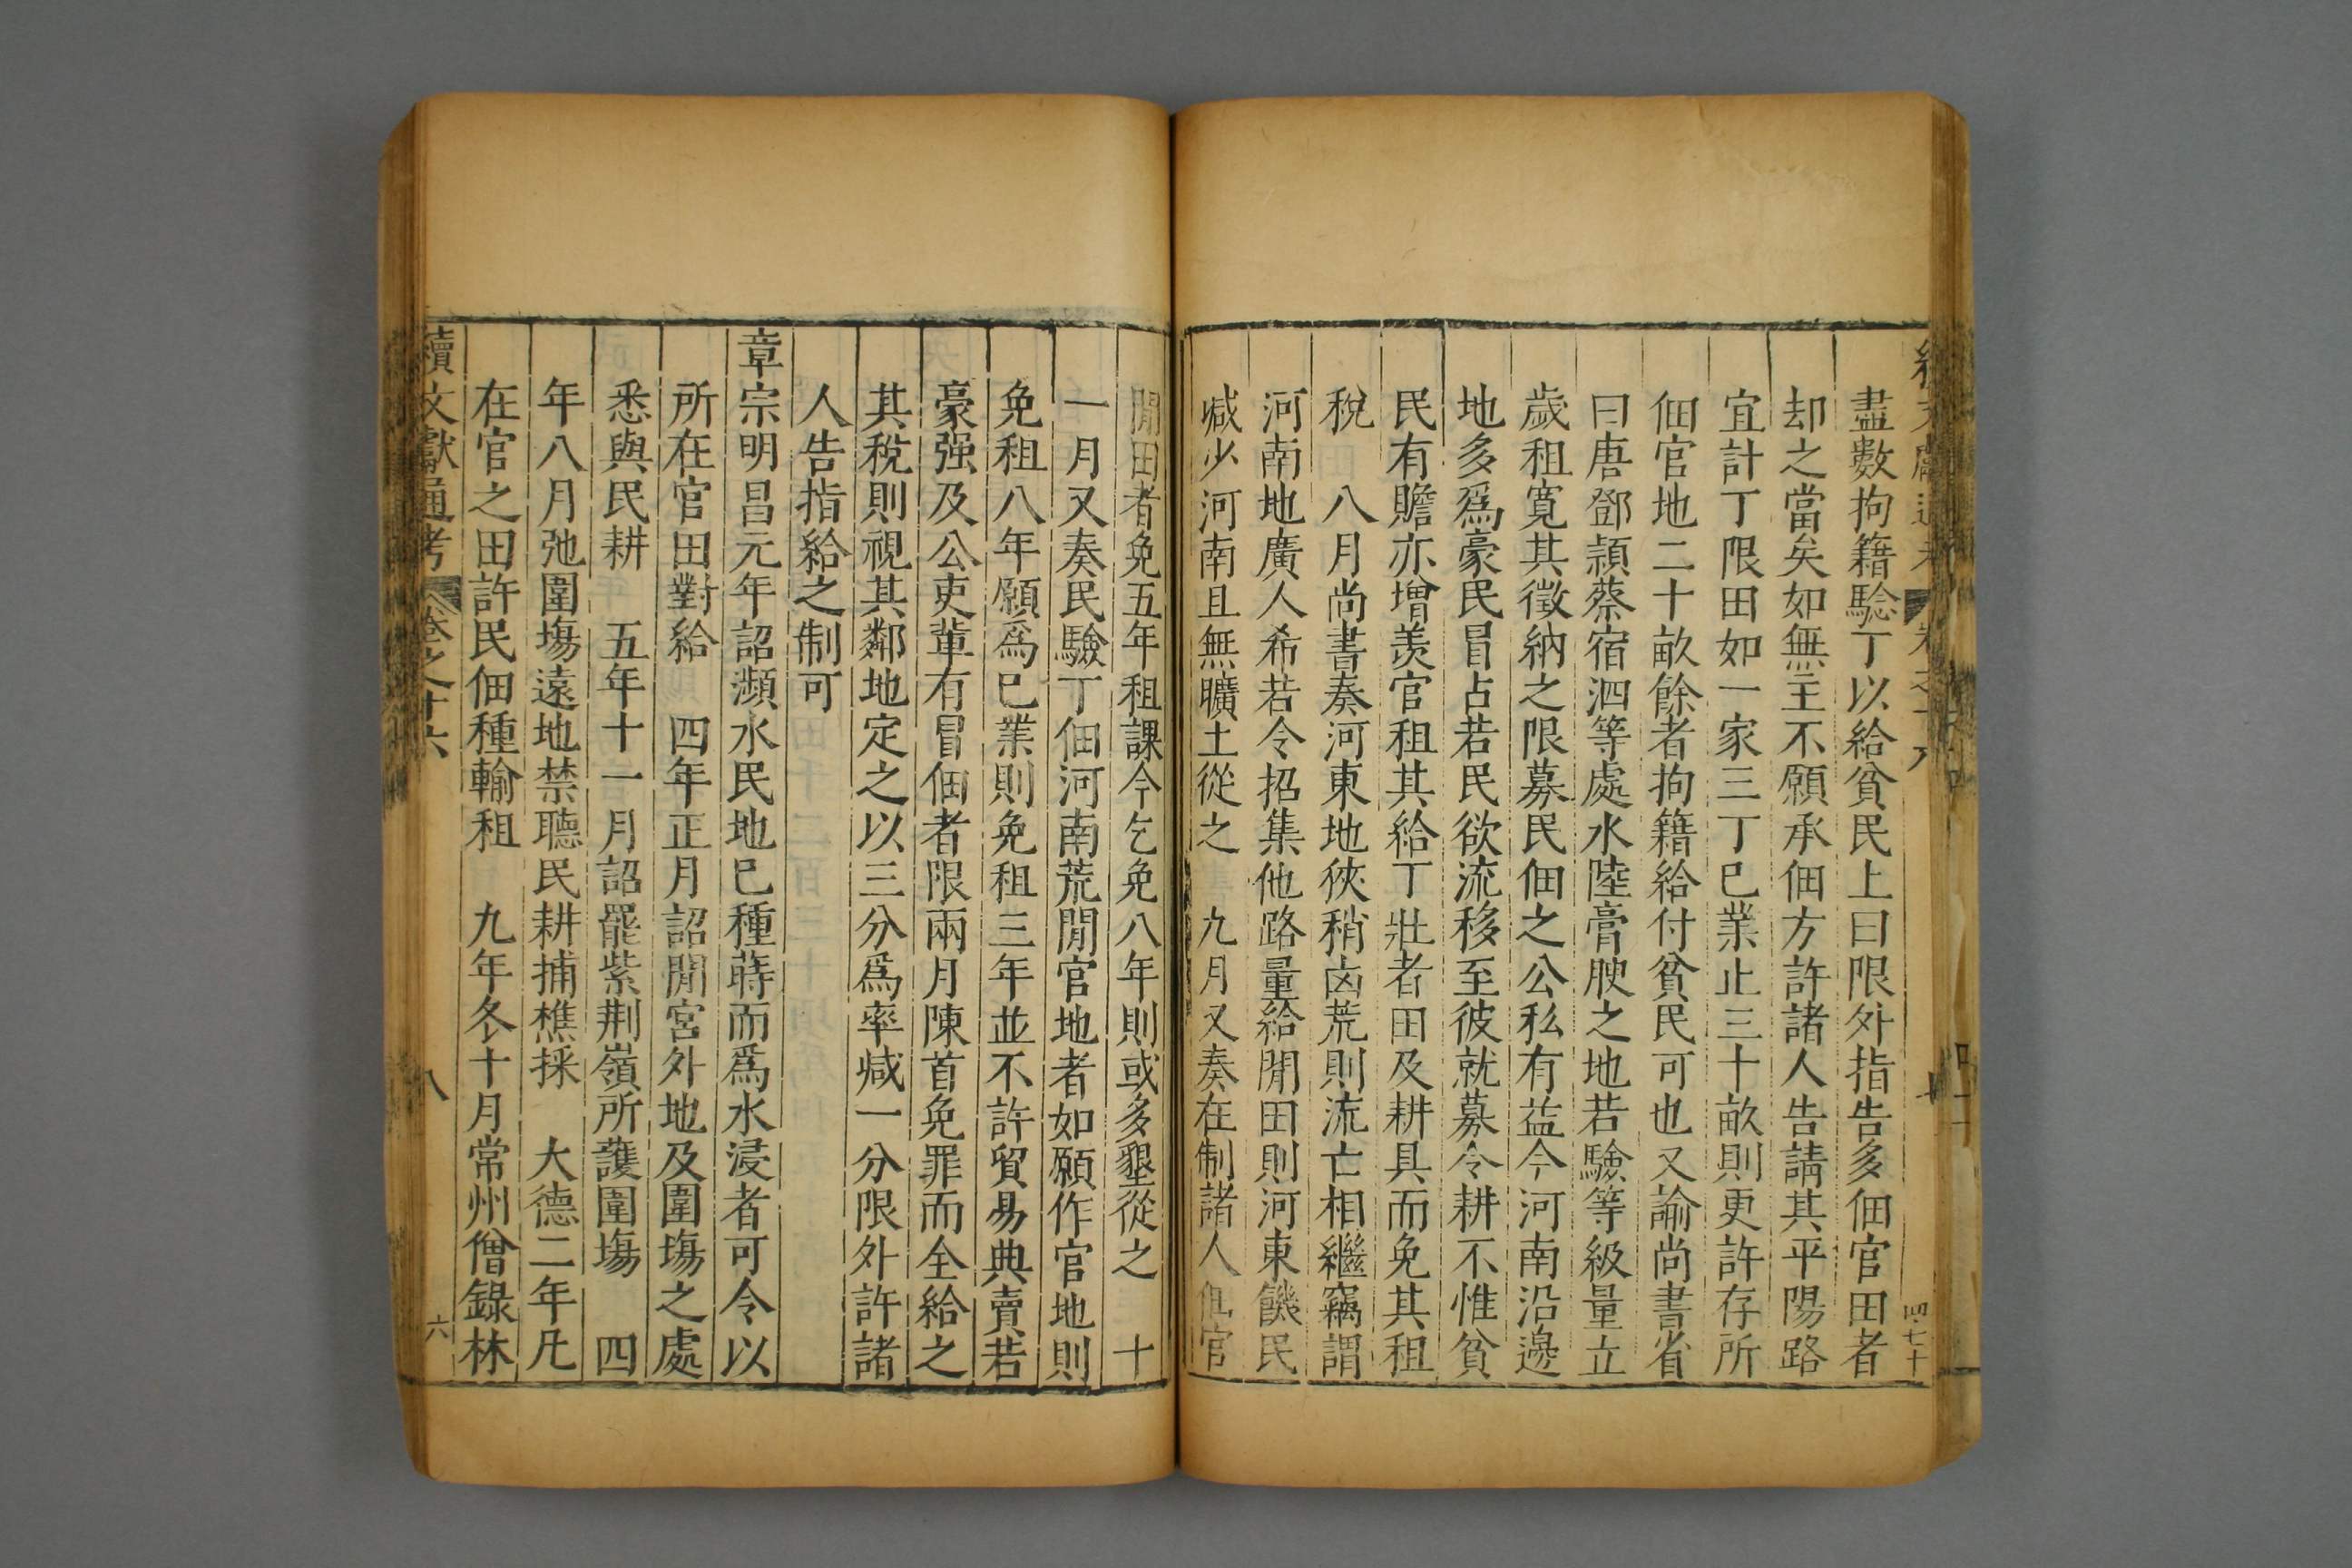 盡數拘籍驗丁以給貧民上曰限外指告多佃官田者
却之當矣如無主不願承佃方許諸人告請其平陽路
宜計丁限田如一家三丁已業止三十畝則更許存所
佃官地二十畝餘者拘籍給付貧民可也又諭尚書省
曰唐鄧潁蔡宿泗等處水陸膏腴之地若驗等級量立
歲租寬其徵納之限募民佃之公私有益今河南沿邊
地多爲豪民冒占若民欲流移至彼就募令耕不惟貧
民有贍亦增羨官租其給丁壯者田及耕具而免其租
稅　八月尚書奏河東地狹稍凶荒則流亡相繼竊謂
河南地廣人希若令招集他路量給閒田則河東饑民
减少河南且無曠土從之　九月又奏在制諸人佃官
閒田者免五年租課今乞免八年則或多墾從之　十
一月又奏民驗丁佃河南荒閒官地者如願作官地則
免租八年願爲已業則免租三年並不許貿易典賣若
豪强及公吏輩有冒佃者限兩月陳首免罪而全給之
其稅則視其鄰地定之以三分爲率减一分限外許諸
人告指給之制可
章宗明昌元年詔瀕水民地已種蒔而爲水浸者可令以
所在官田對給　四年正月詔閒宮外地及圍塲之處
悉與民耕　五年十一月詔罷紫荆嶺所護圍塲　四
年八月弛圍塲遠地禁聽民耕捕樵採　大德二年凡
在官之田許民佃種輸租　九年冬十月常州僧錄林
續文獻通考　卷之十六　八　六